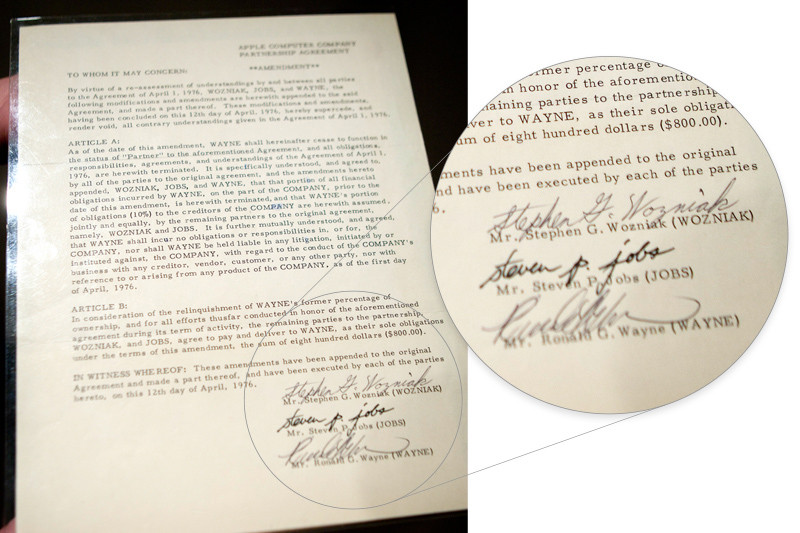 APPLE COMPUTER COMPANY
PARTNERSHIP AGREEMENT
TO WHOM IT MAY CONCERN:
**AMENDMENT**
By virtue of a re-assessment of understandings by and between all parties
to the Agreement of April 1, 1976, WOZNIAK, JOBS, and WAYNE, the
following modifications and amendments are herewith appended to the said
Agreement, and made a part thereof. These modifications and amendments,
having been concluded on this 12th day of April, 1976, hereby supercede, and
render void, all contrary understandings given in the Agreement of April 1, 1976.
ARTICLE A:
As of the date of this amendment, WAYNE shall hereinafter cease to function in
the status of "Partner" to the aforementioned Agreement, and all obligations,
responsibilities, agreements, and understandings of the Agreement of April 1,
1976, are herewith terminated. It is specifically understood, and agreed to,
by all of the parties to the original agreement, and the amendments hereto
appended, WOZNIAK, JOBS, and WAYNE, that that portion of all financial
obligations incurred by WAYNE, on the part of the COMPANY, prior to the
date of this amendment, is herewith terminated, and that WAYNE's portion
of obligations (10%) to the creditors of the COMPANY are herewith assumed,
jointly and equally, by the remaining partners to the original agreement,
namely, WOZNIAK and JOBS. It is further mutually understood, and agreed,
that WAYNE shall incur no obligations or responsibilities in, or for, the
COMPANY, nor shall WAYNE be held liable in any litigation, initiated by or
instituted against, the COMPANY, with regard to the conduct of the COMPANY's
business with any creditor, vendor, customer, or any other party, nor with
reference to or arising from any product of the COMPANY, as of the first day
of April, 1976.
ARTICLE B:
In consideration of the relinquishment of WAYNE's former percentage of
ownership, and for all efforts thusfar conducted in honor of the aforementioned
agreement during its term of activity, the remaining parties to the partnership,
WOZNIAK, and JOBS, agree to pay and deliver to WAYNE, as their sole obligations
under the terms of this amendment, the sum of eight hundred dollars ($800.00).
IN WITNESS WHEREOF: These amendments have been appended to the original
Agreement and made a part thereof, and have been executed by each of the parties
hereto, on this 12th day of April, 1976.
Stephen G. Wozniak
Mr. Stephen G. Wozniak (WOZNIAK)
steven p. jobs
Mr. Steven P. Jobs (JOBS)
Mr. Ronald G. Wayne (WAYNE)
rmer percentage o
n honor of the aforementio
maining parties to the partnership
ver to WAYNE, as their sole obligat
um of eight hundred dollars ($800.00).
ments have been appended to the original
nd have been executed by each of the parties
6.
Stephen G. Wozniak
Mr. Stephen G. Wozniak (WOZNIAK)
steven p. jobs
Mr. Steven P. Jobs (JOBS)
Mr. Ronald G. Wayne (WAYNE)